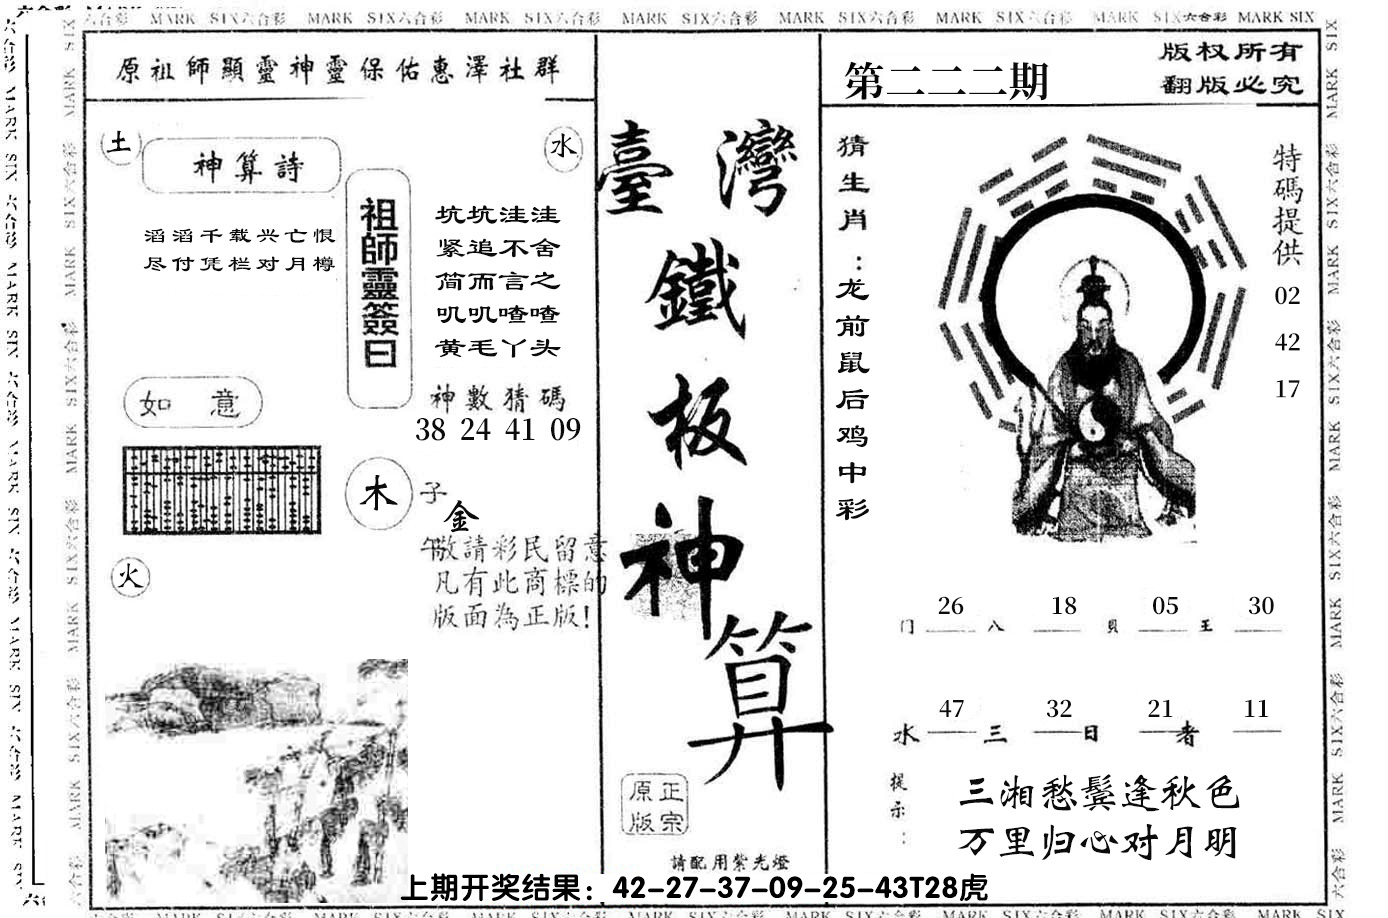 MARK SIX六合彩 MARK SIX六合彩 MARK SIX六合彩 MARK SIX六合彩 MARK SIX六合彩 MARK SIX六合彩 MARK SIX六合彩 MARK SIX
原祖師顯靈神靈保佑惠澤社群
土
神算詩
水
滔滔千载兴亡恨
尽付凭栏对月樽
祖師靈簽曰
坑坑洼洼
紧追不舍
简而言之
叽叽喳喳
黄毛丫头
如意
神數猜碼
38 24 41 09
木
子
金
午
敬請彩民留意
凡有此商標的
版面為正版!
火
臺灣
鐵
板
神
算
正宗
原版
請配用紫光燈
第二二二期
版权所有
翻版必究
猜生肖:龙前鼠后鸡中彩
特碼提供
02
42
17
26 18 05 30
门 八 貝 王
47 32 21 11
水 三 日 者
提示:
三湘愁鬓逢秋色
万里归心对月明
上期开奖结果：42-27-37-09-25-43T28虎